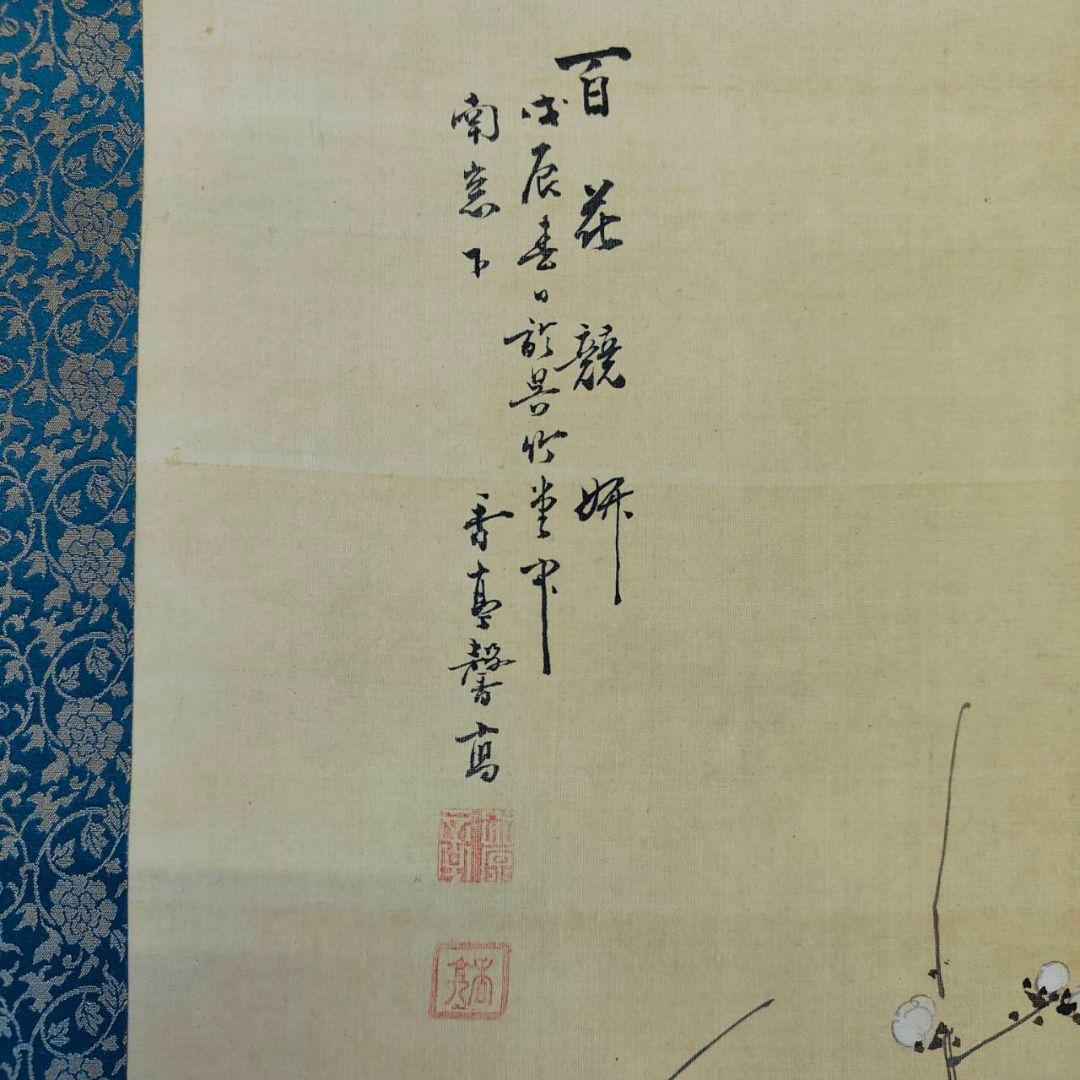 百花競妍
戊辰春日於呉竹堂中
南窓下
香亭馨寫
香亭